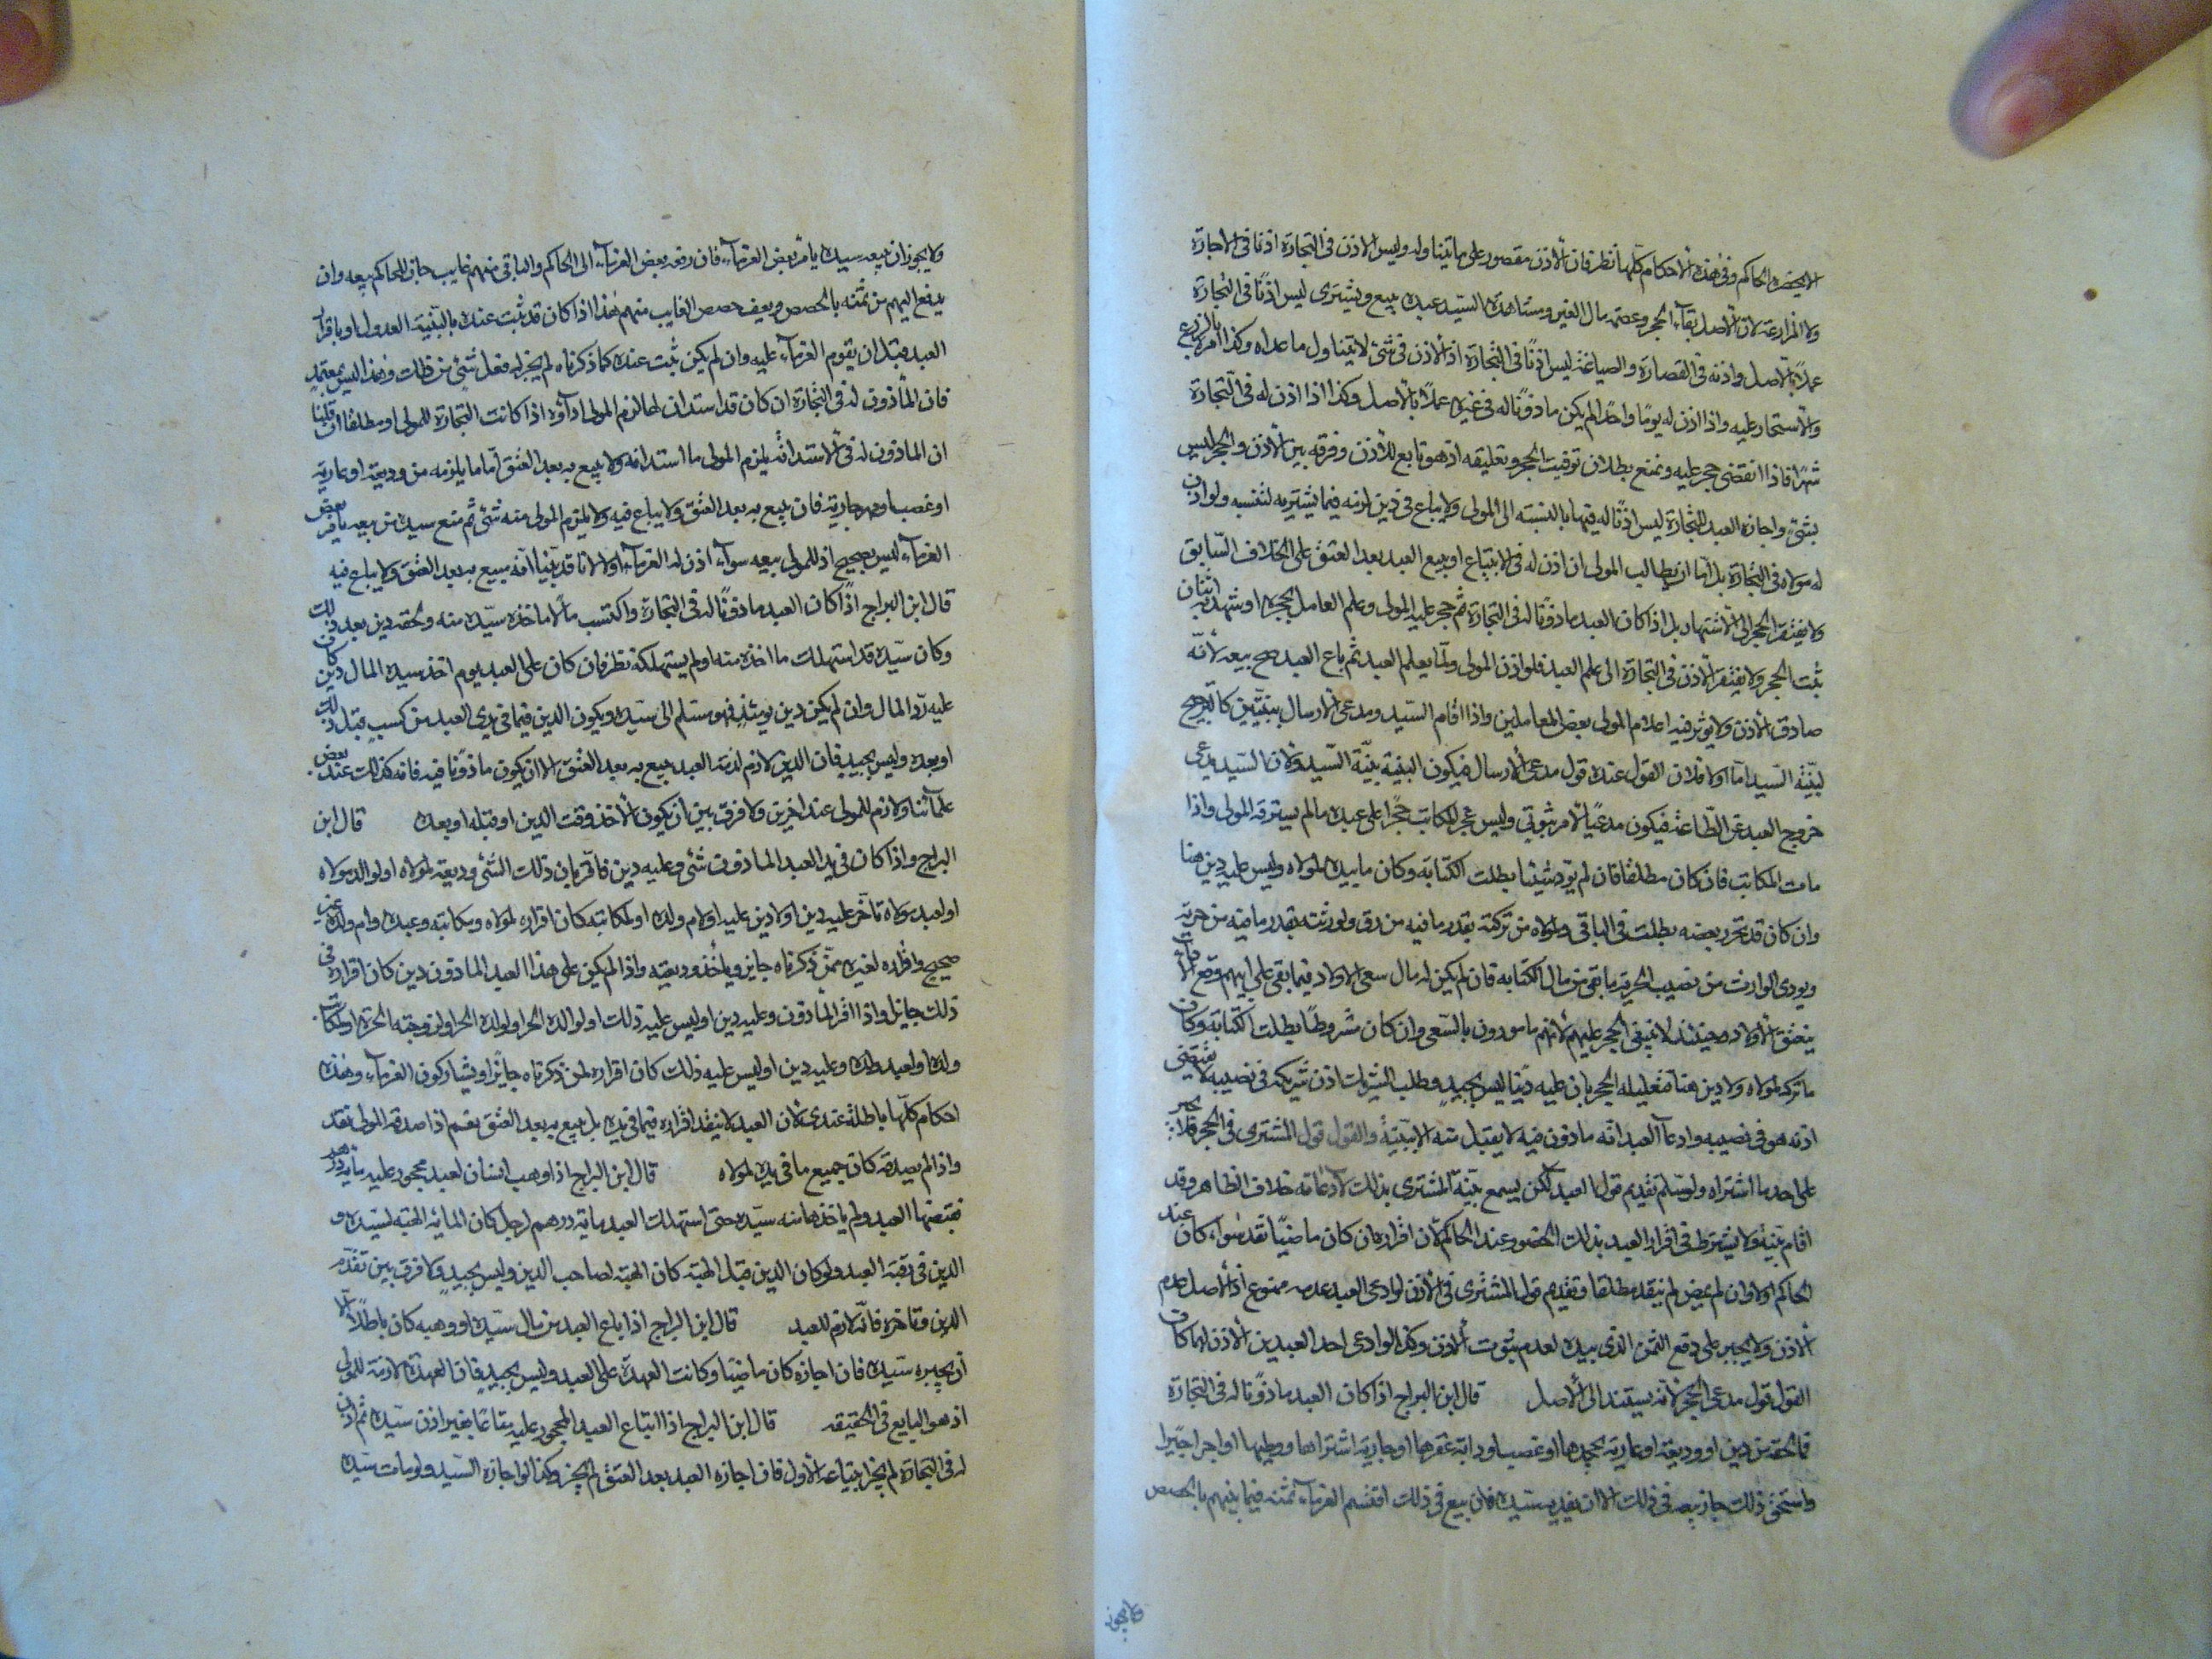 الا بحضرة الحاكم وفى هذه الأحكام كلها نظر فان الأذن مقصور على ما يتناوله وليس الاذن فى التجارة اذنا فى الاجارة
ولا المزارعة لان الأصل بقاء الحجر وعصمة مال الغير ومشاهدة السيد عبده يبيع ويشترى ليس اذنًا فى التجارة
عملاً بالأصل واذنه فى القصارة والصياغة ليس اذنًا فى التجارة اذ الأذن فى شئ لا يتناول ما عداه وكذا امره بالزرع
والأستيجار عليه واذا اذن له يومًا واحدًا لم يكن ماذونًا له فى غيره عملاً بالأصل وكذا اذا اذن له فى التجارة
شهرًا فاذا انقضى حجر عليه ونمنع بطلان توقيت الحجر وتعليقه اذ هو تابع للأذن وفرقه بين الأذن والحجر ليس
بشئ واجازة العبد للتجارة ليس اذنًا له فيها بالنسبة الى المولى ولا يباع فى دين لزمه فيما يشتريه لنفسه ولو اذن
له مولاه فى التجارة بل اما ان يطالب المولى ان اذن له فى الابتياع او يبيع العبد بعد العتق على الخلاف السابق
ولا يفتقر الحجر الى الأشتهار بل اذا كان العبد ماذونًا له فى التجارة ثم حجر عليه المولى وعلم العامل بحجره او شهد به اثنان
ثبت الحجر ولا يفتقر الأذن فى التجارة الى علم العبد فلو اذن المولى ولما يعلم العبد ثم باع العبد صح بيعه لأنه
صادق الأذن ولا يؤثر فيه اعلام المولى بعض المعاملين واذا اقام السيد ومدعى الأرسال بينتين كان الترجيح
لبينة السيد اما اولا فلان القول عنده قول مدعى الأرسال فيكون البينة بينة السيد ولان السيد يدعى
خروج العبد عن الطاعة فيكون مدعيًا لأمر ثبوتى وليس عجز المكاتب حجرًا على عبده ما لم يسترقه المولى واذا
مات المكاتب فان كان مطلقا فان لم يؤد شيئا بطلت الكتابة وكان ما بيده لمولاه وليس عليه دين هنا
وان كان قد تحرر بعضه بطلت فى الباقى ولمولاه من تركته بقدر ما فيه من رق ولورثته بقدر ما فيه من حرية
ويودى الوارث من نصيب الحرية ما بقى من مال الكتابه فان لم يكن له مال سعى الاولاد فيما بقى على ابيهم وقع الا
ينعتق الأولاد وحينئذ لا ينبغى الحجر عليهم لأنهم مامورون بالسعى وان كان مشروطًا بطلت الكتابة وكان
ما تركه لمولاه ولا دين هنا فتعليله الحجر بان عليه دينا ليس بجيد وطلب الشريك اذن شريكه فى نصيبه لا يقتضى
اذنه هو فى نصيبه وادعاء العبد انه ماذون فيه لا يقبل منه الا ببينة والقول قول المشترى فى الحجر فلا يجبر
على اخذ ما اشتراه ولو سلم تقديم قول العبد لكن يسمع بينة المشترى بذلك لادعائه خلاف الظاهر وقد
اقام بينة ولا يشترط فى اقرار العبد بذلك الحضور عند الحاكم لأن اقراره ان كان ماضيًا نفذ سواء كان عند
الحاكم اولا وان لم يمض لم ينفذ مطلقا وتقديم قول المشترى فى الأذن لو ادعى العبد عدمه ممنوع اذ الأصل عدم
الأذن ولا يجبر على دفع الثمن الذى بيده لعدم ثبوت الأذن وكذا لو ادعى احد العبدين الأذن لهما كان
القول قول مدعى الحجر لأنه يستند الى الأصل قال ابن البراج اذا كان العبد ماذونًا له فى التجارة
فما لحقه من دين او وديعة او عارية جحدها او غصب او دابة عقرها او جارية اشتراها ووطيها او اجر اجيرا
واستحق ذلك جاز بيعه فى ذلك الا ان يفديه سيده فان بيع فى ذلك اقتسم الغرماء ثمنه فيما بينهم بالحصص
ولا يجوز
ولا يجوز ان يبيعه سيده يامر بعض الغرماء فان رفعه بعض الغرماء الى الحاكم والباقى منهم غايب جاز للحاكم بيعه وان
يدفع اليهم من ثمنه بالحصص ويعف حصص الغايب منهم هذا اذا كان قد ثبت عنده بالبينة العدول او باقرار
العبد قبل ان يقوم الغرماء عليه وان لم يكن ثبت عنده كما ذكرناه لم يجز له فعل شئ من ذلك وهذا ليس بمعتمد
فان المأذون له فى التجارة ان كان قد استدان لها لزم المولى اداؤه اذا كانت التجارة للمولى او مطلقا ان قلنا
ان الماذون له فى الأستدانة يلزم المولى ما استدانه ولا يبيع به بعد العتق اما ما يلزمه من وديعة او عارية
او غصب او مهر جارية فان يبيع به بعد العتق ولا يباع فيه ولا يلزم المولى منه شئ ثم منع سيده من بيعه بامر بعض
الغرماء ليس بصحيح اذ للمولى بيعه سواء اذن له الغرماء اولا لانا قد بينا انه يبيع به بعد العتق ولا يباع فيه
قال ابن البراج اذا كان العبد ماذونًا له فى التجارة واكتسب مالاً فاخذه سيده منه ولحقه دين بعد ذلك
وكان سيده قد استهلك ما اخذه منه اولم يستهلكه نظر فان كان على العبد يوم اخذ سيده المال دين كان
عليه رد المال وان لم يكن دين يومئذ فهو مسلم الى سيده ويكون الدين فيما فى يدى العبد من كسب قبل ذلك
او بعده وليس بجيد فان الدين لازم لذمة العبد يبيع به بعد العتق الا ان يكون ماذونا فيه فانه كذلك عند بعض
علمائنا ولازم للمولى عند اخرين ولا فرق بين ان يكون الأخذ وقت الدين او قبله او بعده قال ابن
البراج واذا كان فى يد العبد الماذون شئ وعليه دين فاقر بان ذلك الشئ وديعة لمولاه او لوالد مولاه
او لعبد مولاه تاخر عليه دين او لا دين عليه او لام ولده او لمكاتبه كان اقراره لمولاه ومكاتبه وعبده وام ولده غير
صحيح واقراره لغيره ممن ذكرناه جايز ويأخذ وديعته واذا لم يكن على هذا العبد الماذون دين كان اقراره فى
ذلك جايز واذا اقر المأذون وعليه دين او ليس عليه ذلك او لوالده الحر او لولده الحر او لزوجته الحرة او لمكاتب
ولده او لعبد ولده وعليه دين او ليس عليه ذلك كان اقراره لمن ذكرناه جايزًا ويشاركون الغرماء وهذه
احكام كلها باطلة عندى لأن العبد لا ينفذ اقراره فيما فى يده بل يبيع به بعد العتق نعم اذا صدقه المولى نفذ
واذا لم يصدقه كان جميع ما فى يده لمولاه قال ابن البراج اذا وهب انسان لعبد محجور عليه مأية درهم
فقبضها العبد ولم ياخذها منه سيده حتى استهلك العبد ماية درهم لرجل كان المائة الهبة لسيده و
الدين فى رقبة العبد ولو كان الدين قبل الهبة كان الهبة لصاحب الدين وليس بجيد ولا فرق بين تقدم
الدين وتاخره فانه لازم للعبد قال ابن البراج اذا باع العبد من مال سيده او وهبه كان باطلاً الا
ان يجيزه سيده فان اجازه كان ماضيًا وكانت العهدة على العبد وليس بجيد فان العهدة لازمة للمولى
اذ هو البايع فى الحقيقه قال ابن البراج اذا ابتاع العبد المحجور عليه متاعًا بغير اذن سيده ثم اذن
له فى التجارة لم يجز ابتياعه الأول فان اجازه العبد بعد العتق لم يجز وكذا لو اجازه السيد ولو مات سيده